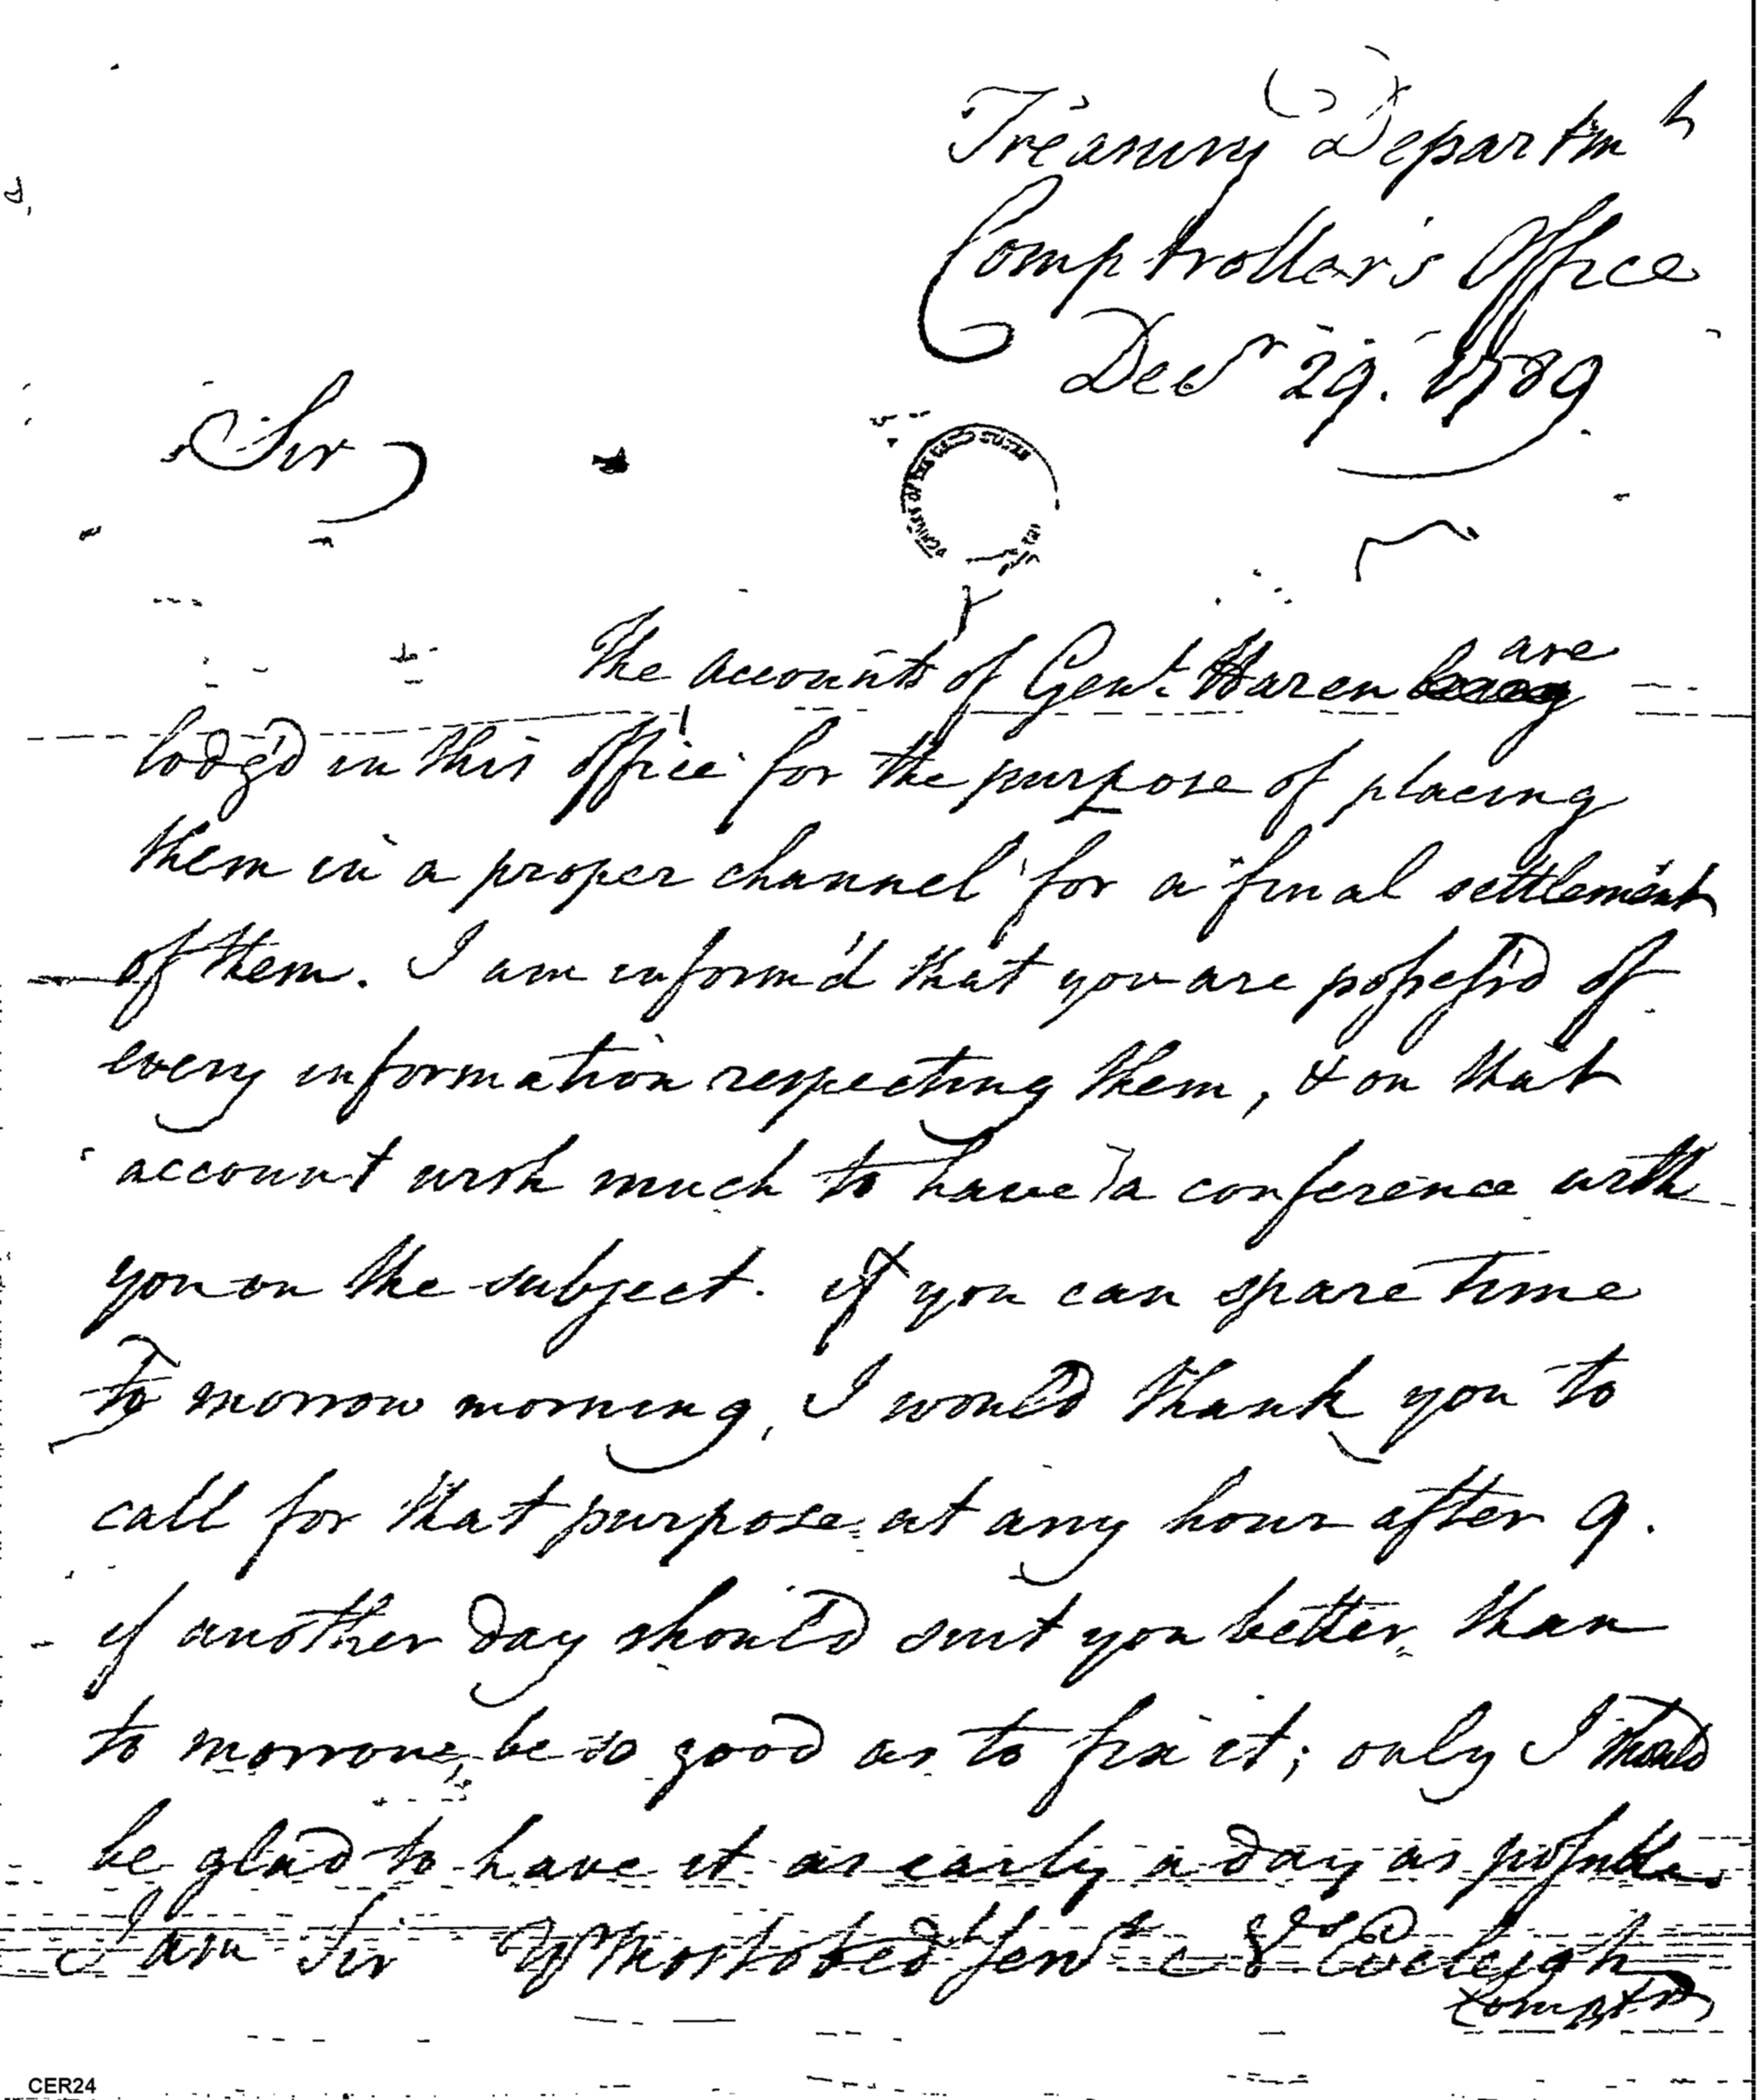 Treasury Departmt
Comptroller's Office
Decr 29. 1789
Sir
The accounts of Genl. Hazen being are
lodg'd in this Office for the purpose of placing
them in a proper channel for a final settlement
of them. I am inform'd that you are possess'd of
every information respecting them, & on that
account wish much to have a conference with
you on the subject. if you can spare time
to morrow morning, I would thank you to
call for that purpose at any hour after 9.
if another day should suit you better than
to morrow, be so good as to fix it; only I should
be glad to have it as early a day as possible.
I am Sir Yr most obedt Servt Eveleigh
Comptr
CER24